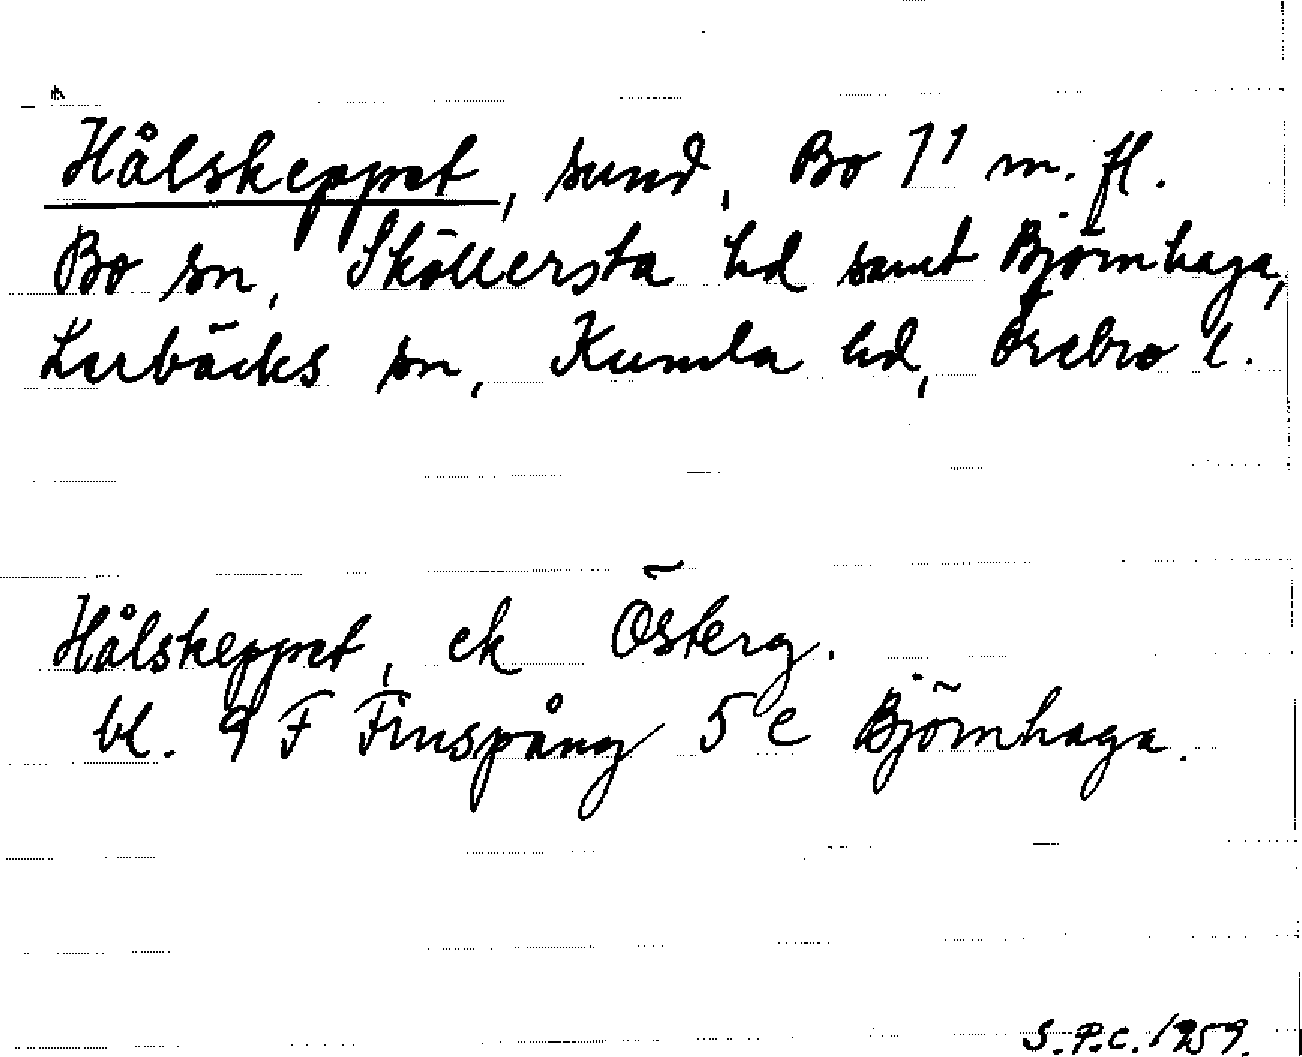 Hålskeppet, sund, Bo 1¹ m. fl.
Bo sn, Sköllersta hd samt Björnhaga,
Lerbäcks sn, Kumla hd, Örebro l.
Hålskeppet, ek Österg.
bl. 9 F Finspång 5 e Björnhaga.
S.P.C. 1959.